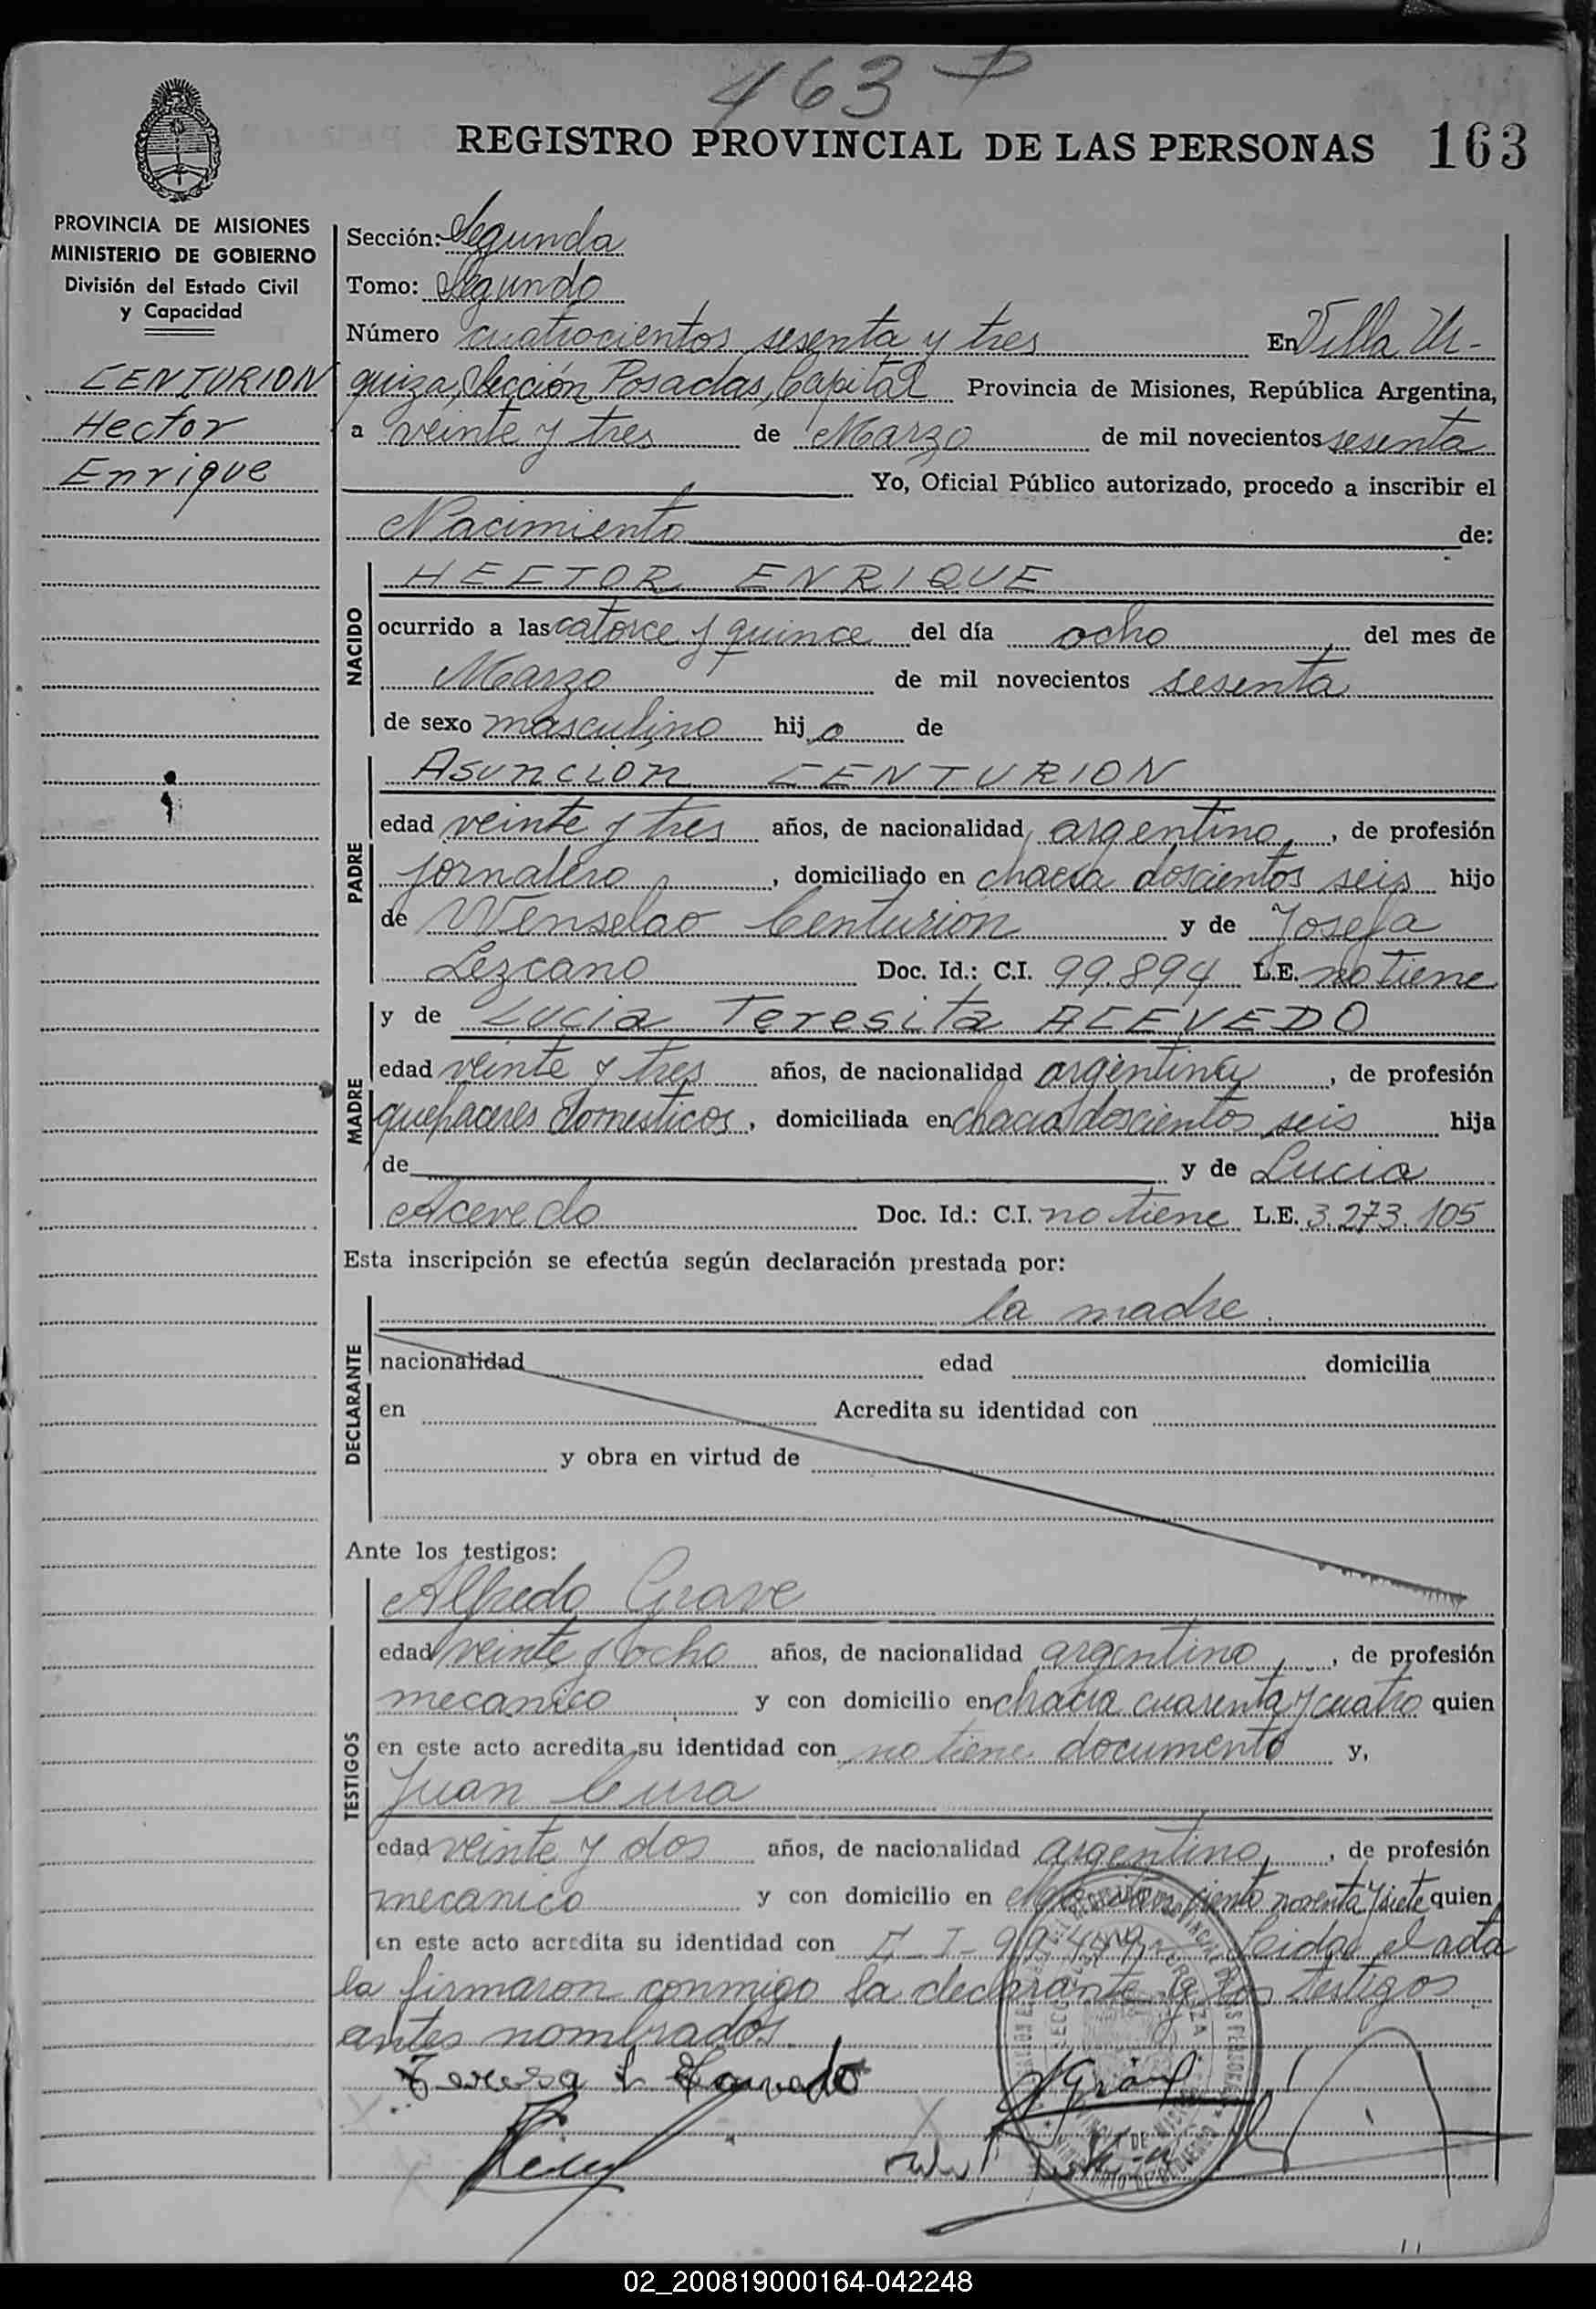 463
REGISTRO PROVINCIAL DE LAS PERSONAS 163
PROVINCIA DE MISIONES
MINISTERIO DE GOBIERNO
División del Estado Civil
y Capacidad
CENTURION
Hector
Enrique
Sección: Segunda
Tomo: Segundo
Número cuatrocientos sesenta y tres En Villa Ur-
quiza, Sección Posadas, Capital Provincia de Misiones, República Argentina,
a veinte y tres de Marzo de mil novecientos sesenta
Yo, Oficial Público autorizado, procedo a inscribir el
Nacimiento de:
NACIDO
HECTOR ENRIQUE
ocurrido a las catorce y quince del día ocho del mes de
Marzo de mil novecientos sesenta
de sexo masculino hijo de
PADRE
Asuncion CENTURION
edad veinte y tres años, de nacionalidad argentino, de profesión
jornalero, domiciliado en chacra doscientos seis hijo
de Wenselao Centurión y de Josefa
Lezcano Doc. Id.: C.I. 99.894 L.E. no tiene
MADRE
y de Lucia Teresita ACEVEDO
edad veinte y tres años, de nacionalidad argentina, de profesión
quehaceres domesticos, domiciliada en chacra doscientos seis hija
de y de Lucia
Acevedo Doc. Id.: C.I. no tiene L.E. 3.273.105
Esta inscripción se efectúa según declaración prestada por:
DECLARANTE
la madre.
nacionalidad edad domicilia
en Acredita su identidad con
y obra en virtud de
Ante los testigos:
TESTIGOS
Alfredo Grave
edad veinte y ocho años, de nacionalidad argentino, de profesión
mecanico y con domicilio en chacra cuarenta y cuatro quien
en este acto acredita su identidad con no tiene documento y,
Juan Cura
edad veinte y dos años, de nacionalidad argentino, de profesión
mecanico y con domicilio en ciento noventa y siete quien
en este acto acredita su identidad con C-I- Leida el acta
la firmaron conmigo la declarante y los testigos
antes nombrados.
02_200819000164-042248